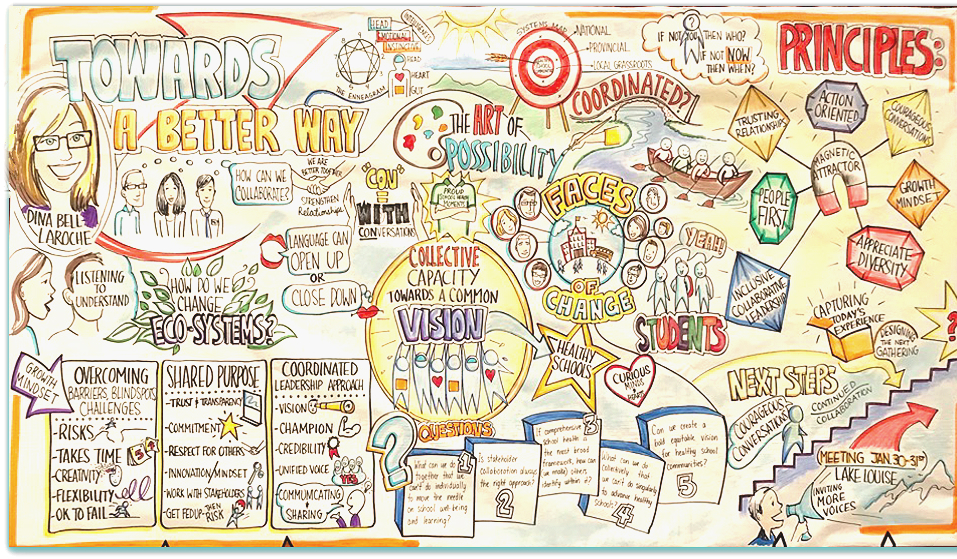 TOWARDS
A BETTER WAY
DINA BELL-
LAROCHE
HEAD
EMOTIONAL
INSTINCTIVE
INTELLIGENCES
HEAD
HEART
GUT
THE ENNEAGRAM
HOW CAN WE
COLLABORATE?
WE ARE
BETTER TOGETHER
STRENGTHEN
RELATIONSHIPS
LANGUAGE CAN
OPEN UP
OR
CLOSE DOWN
"CON"
=
WITH
CONVERSATIONS
THE ART OF
POSSIBILITY
PROUD
SCHOOL HEALTH
MOMENTS
SYSTEMS MAP
NATIONAL
PROVINCIAL
LOCAL GRASSROOTS
COORDINATED?!
IF NOT YOU THEN WHO?
IF NOT NOW
THEN WHEN?
PRINCIPLES:
TRUSTING
RELATIONSHIPS
ACTION
ORIENTED
COURAGEOUS
CONVERSATION
MAGNETIC
ATTRACTOR
PEOPLE
FIRST
GROWTH
MINDSET
APPRECIATE
DIVERSITY
INCLUSIVE
COLLABORATIVE
LEADERSHIP
LISTENING
TO
UNDERSTAND
HOW DO WE
CHANGE
ECO-SYSTEMS?
COLLECTIVE
CAPACITY
TOWARDS A COMMON
VISION
FACES
OF
CHANGE
YEAH!
STUDENTS
HEALTHY
SCHOOLS
CURIOUS
MINDS
+
HEART
CAPTURING
TODAY'S
EXPERIENCE
DESIGNING
THE NEXT
GATHERING
?
GROWTH
MINDSET
OVERCOMING
BARRIERS, BLINDSPOTS
CHALLENGES
-RISKS
-TAKES TIME
-CREATIVITY
-FLEXIBILITY
-OK TO FAIL
SHARED PURPOSE
-TRUST + TRANSPARENCY
-COMMITMENT
-RESPECT FOR OTHERS
-INNOVATION/MINDSET
-WORK WITH STAKEHOLDERS
-GET FED UP - THEN
RISK
COORDINATED
LEADERSHIP APPROACH
-VISION
-CHAMPION
-CREDIBILITY
-UNIFIED VOICE
YES
-COMMUNICATING
SHARING
?
QUESTIONS
1
What can we do
together that we
can't do individually
to move the needle
on school well-being
and learning?
Is stakeholder
collaboration always
the right approach?
2
3
If comprehensive
school health is
the most broad
framework, how can
we (make) others
identify within it?
What can we do
collectively that
we can't do singularly
to advance healthy
schools?
4
Can we create a
bold equitable vision
for healthy school
communities?
5
NEXT STEPS
COURAGEOUS
CONVERSATIONS
CONTINUED
COLLABORATION
MEETING JAN 30-31st
LAKE LOUISE
INVITING
MORE
VOICES